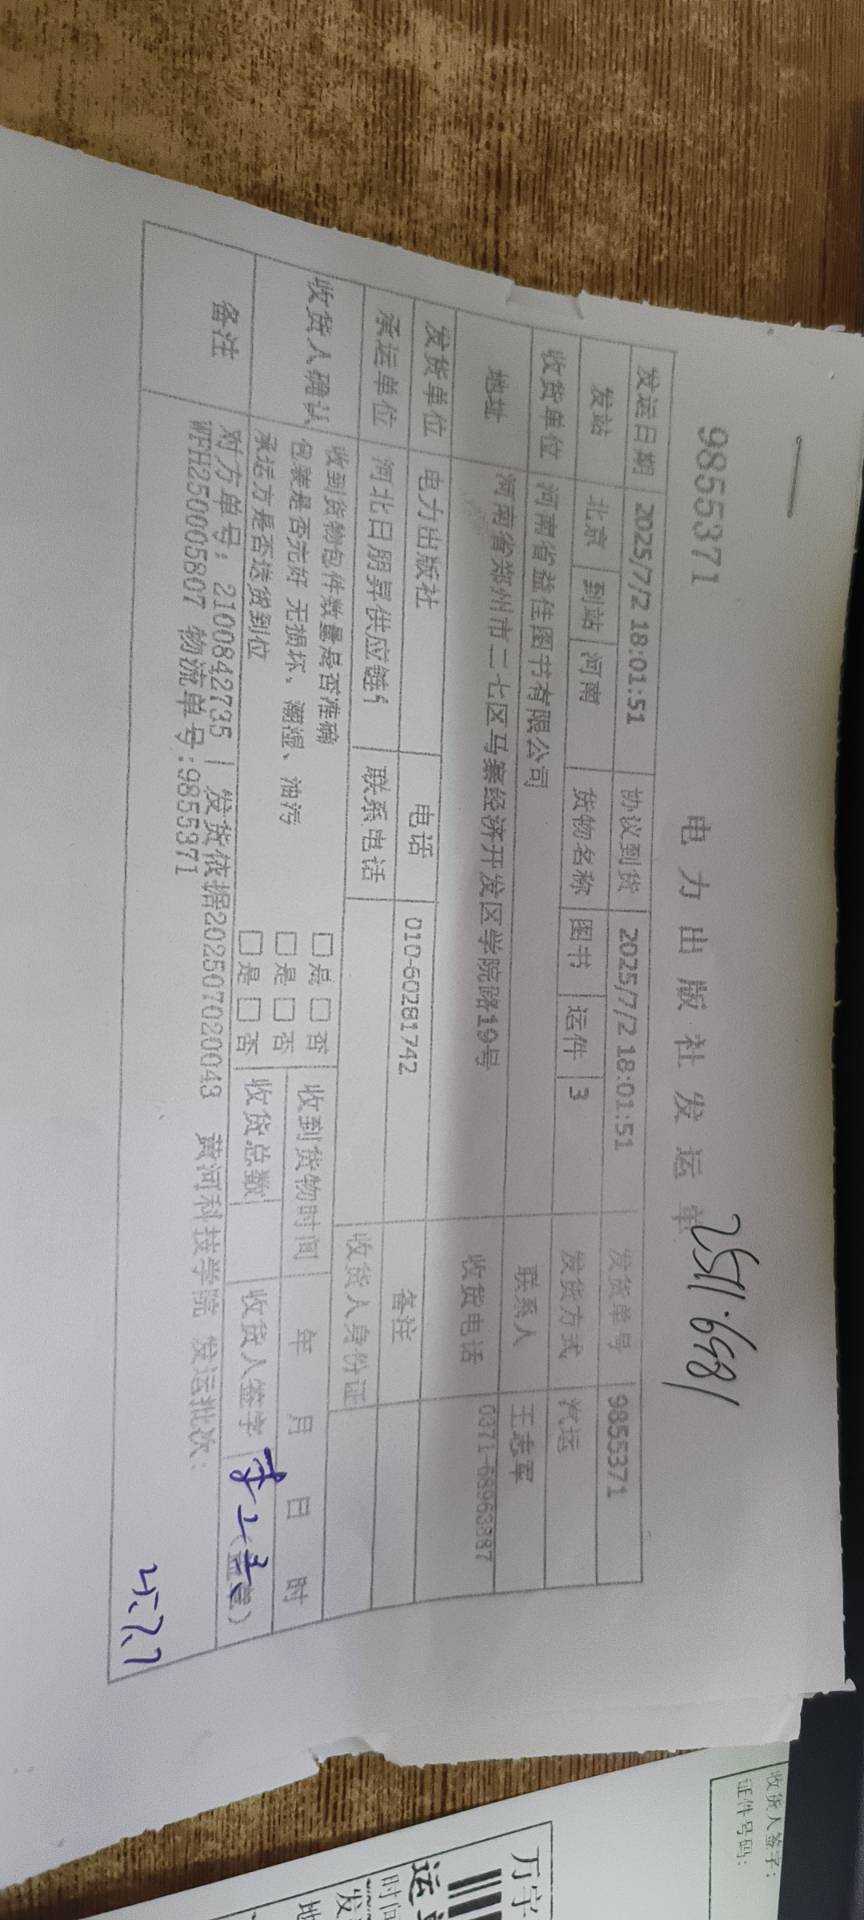 9855371
电力出版社发运单
2511.6981
发运日期 2025/7/2 18:01:51 协议到货 2025/7/2 18:01:51 发货单号 9855371
发站 北京 到站 河南 货物名称 图书 运件 3 发货方式 汽运
收货单位 河南省益佳图书有限公司 联系人 王志军
地址 河南省郑州市二七区马寨经济开发区学院路19号 收货电话 0371-68963887
发货单位 电力出版社 电话 010-60281742 备注
承运单位 河北日朋昇供应链 联系电话 收货人身份证
收货人确认 收到货物包件数量是否准确 □是 □否 收到货物时间 年 月 日 时
包装是否完好 无损坏、潮湿、油污 □是 □否
承运方是否送货到位 □是 □否 收货总数 收货人签字 (盖章)
备注 对方单号:2100842735 | 发货依据202507020043 黄河科技学院 发运批次:
WFH250005807 物流单号:9855371
收货人签字:
证件号码:
万宇
运
时间
发
地